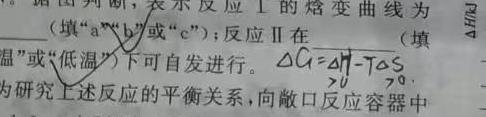 据图判断，表示反应Ⅰ的焓变曲线为
（填“a”“b”或“c”）；反应Ⅱ在 （填
温”或“低温”）下可自发进行。 ΔG=ΔH-TΔS
>0 >0.
为研究上述反应的平衡关系，向敞口反应容器中
ΔH/kJ